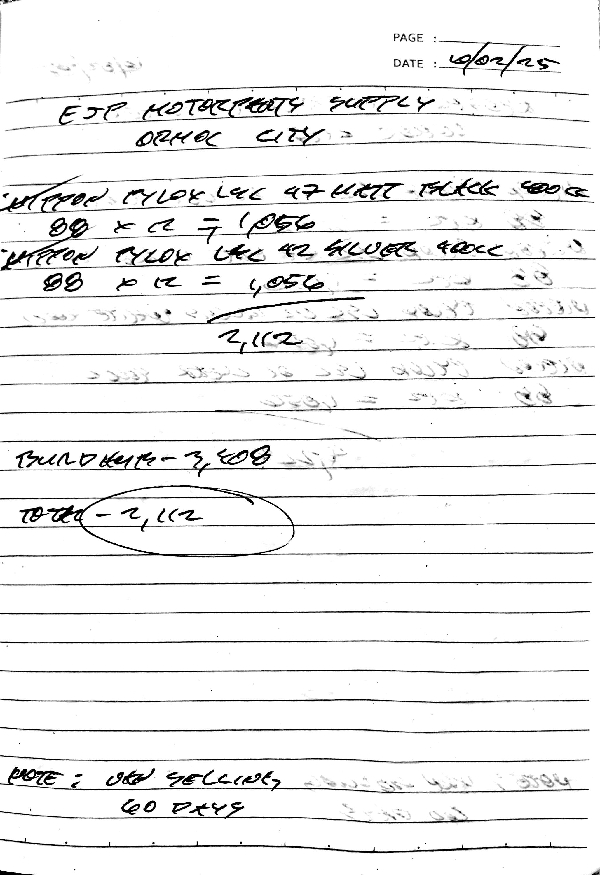 PAGE :
DATE : 6/02/25
EJP MOTORPARTS SUPPLY
ORMOC CITY
NIPPON PYLOX LAC 47 MATT BLACK 400CC
88 x 12 = 1,056
NIPPON PYLOX LAC 42 SILVER 400CC
88 x 12 = 1,056
2,112
- 3,408
TOTAL - 2,112
NOTE : VAN SELLING
60 DAYS